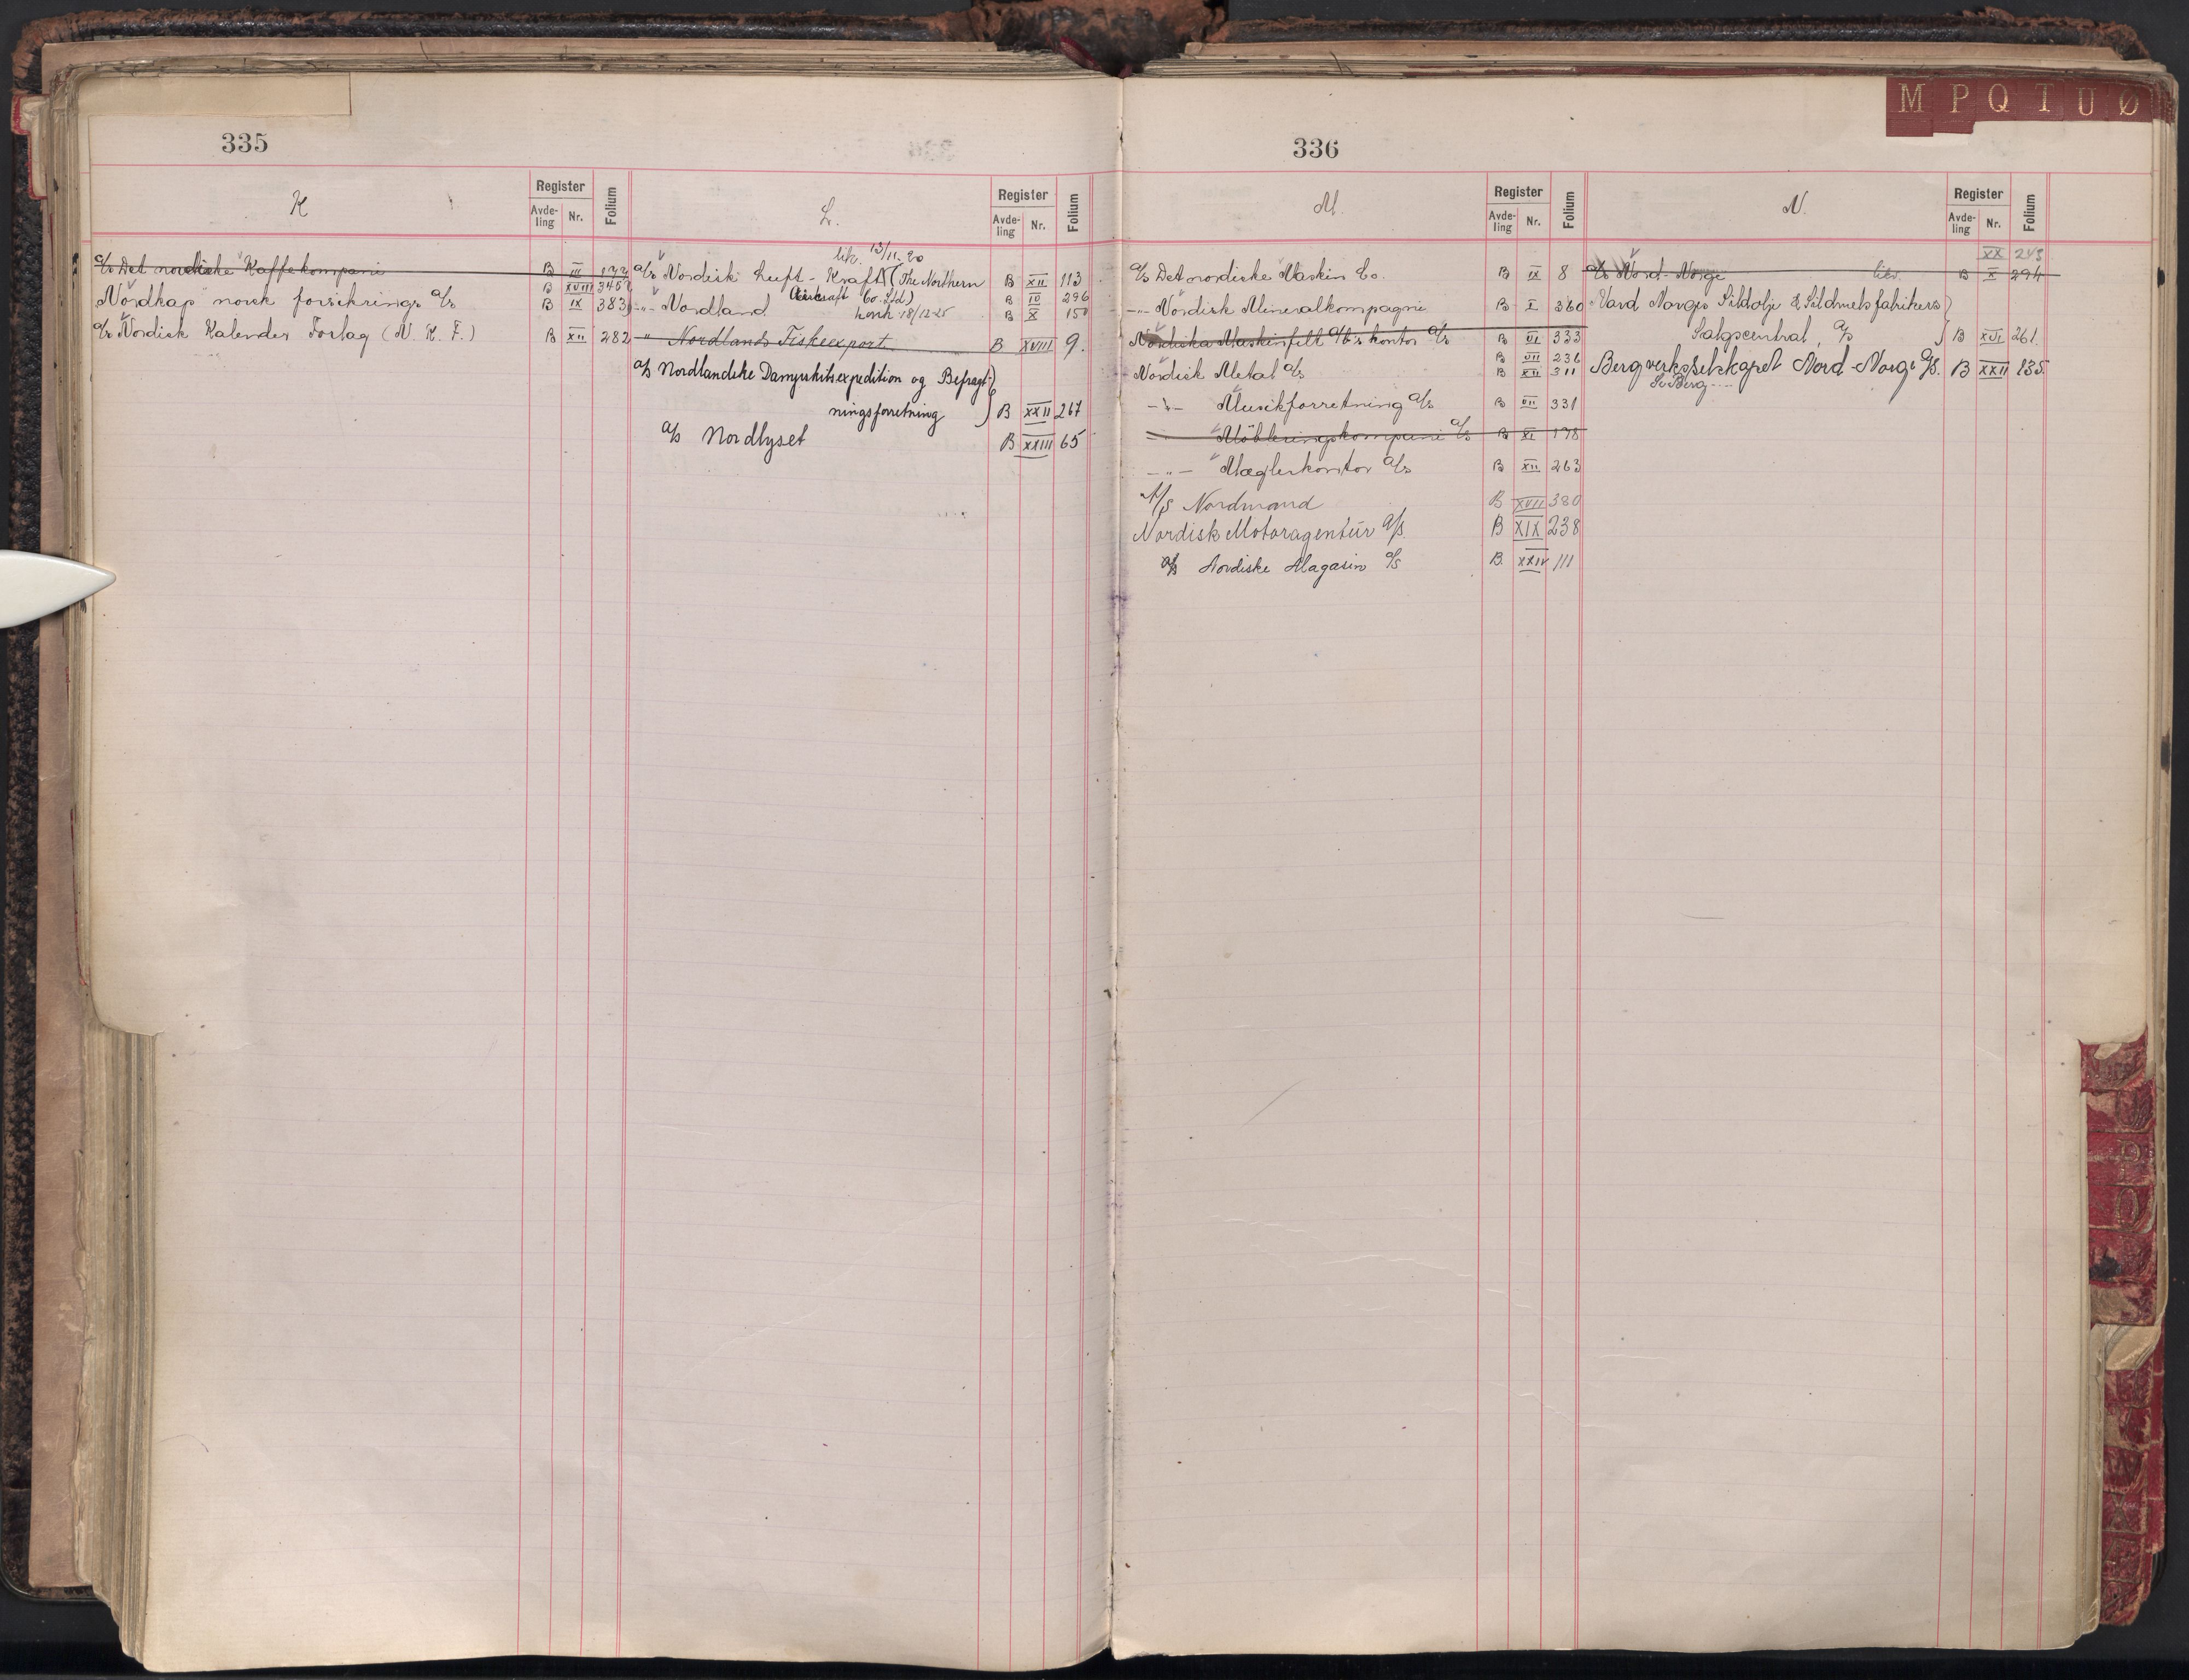 335
K
Register
Avde-ling
Nr.
Folium
A/s Det nordiske Kaffekompani B III 132
B XVIII 345
Nordkap norsk forsikrings A/s B IX 383
A/s Nordisk Kalender Forlag (N. K. F.) B XII 282
L.
Register
Avde-ling
Nr.
Folium
lik. 13/11-20
A/s Nordisk Luft-Kraft (The Northern B XII 113
Aircraft Co. Ltd) B IV 296
-"- Nordland hevet 18/12-25 B X 150
-"- Nordlands Fiskeexport B XVIII 9.
A/S Nordlandske Dampskibsexpedition og Befragt-
ningsforretning B XXII 267
A/S Nordlyset B XXIII 65
336
M P Q T U Ø
M.
Register
Avde-ling
Nr.
Folium
A/s Det nordiske Maskin Co. B IX 8
-"- Nordisk Mineralkompagni B X 360
Nordiska Maskinfilt A/B's kontor A/s B VI 333
B VII 236
Nordisk Metal A/s B XII 311
-"- Musikforretning A/s B VII 331
-"- Möbleringskompani A/s B XI 198
-"- Mæglerkontor A/s B XII 263
A/S Nordmand B XVII 380
Nordisk Motoragentur A/S B XIX 238
A/S Nordiske Magasin A/S B. XXIV 111
N.
Register
Avde-ling
Nr.
Folium
XX 243
A/s Nord-Norge likv. B X 294
Nord Norges Sildolje & Sildmelsfabrikers
Salgscentral, A/S B XVI 261.
Bergverksselskapet Nord-Norge A/S. B XXII 135
Se Berg----